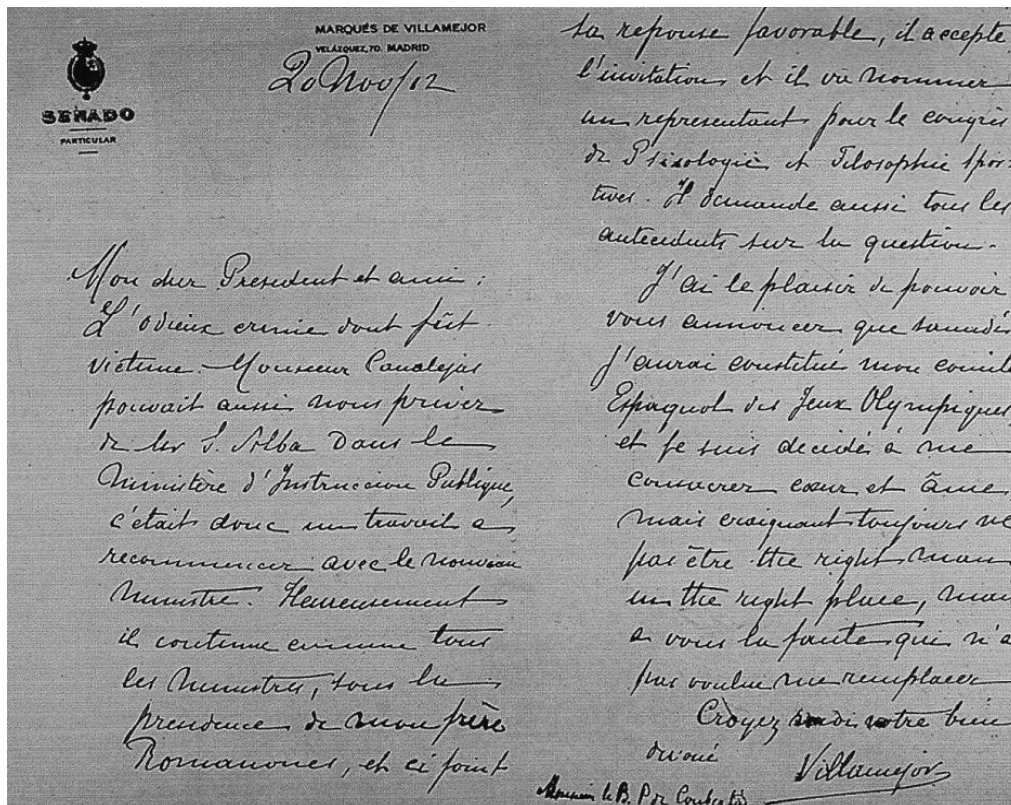 MARQUÉS DE VILLAMEJOR
VELÁZQUEZ, 70. MADRID
20 Nov/12
SENADO
PARTICULAR
Mon cher President et ami:
L'Odieux crime dont fût
victime Monsieur Canalejas
pouvait aussi nous priver
de S. Alba Dans le
Ministère d'Instruccion Publique,
c'était donc un travail a
recommencer avec le nouveau
Ministre. Heureusement
il continue comme tous
les Ministres, sous la
presidence de mon frère
Romanones, et ci joint
sa reponse favorable, il accepte
l'invitation et il va nommer
un representant pour le congrès
de Psixologie et Filosophie spor-
tives. Il demande aussi tous les
antecedents sur la question.
J'ai le plaisir de pouvoir
vous annoncer que samedi
j'aurai constitué mon comité
Espagnol des Jeux Olympiques,
et je suis decidé à me
consacrer cœur et âme,
mais craignant toujours ne
pas être the right man
in the right place, mais
a vous la faute qui n'a
pas voulu me remplacer
Croyez votre bien
devoué
Villamejor
Monsieur le B. P. de Coubertin